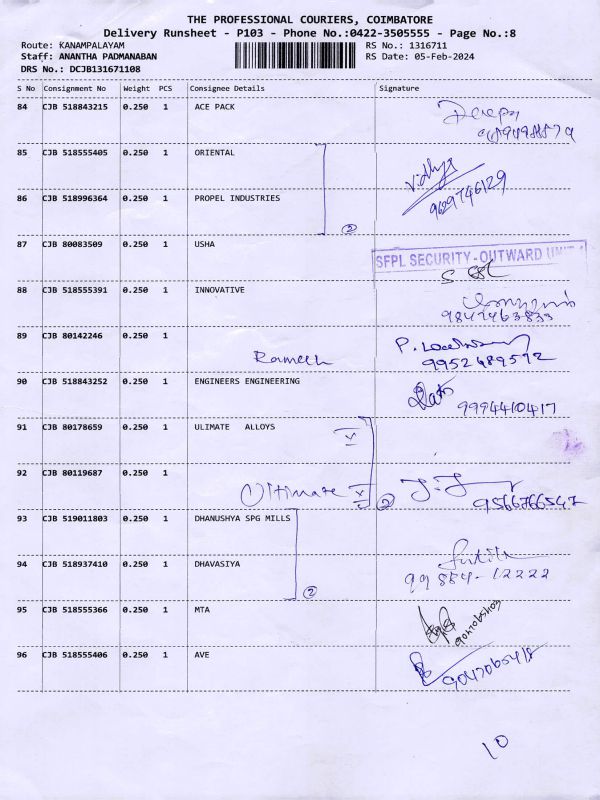 THE PROFESSIONAL COURIERS, COIMBATORE
Delivery Runsheet - P103 - Phone No.:0422-3505555 - Page No.:8
Route: KANAMPALAYAM
RS No.: 1316711
Staff: ANANTHA PADMANABAN
RS Date: 05-Feb-2024
DRS No.: DCJB131671108
S No Consignment No Weight PCS Consignee Details Signature
84 CJB 518843215 0.250 1 ACE PACK
Deepa
85 CJB 518555405 0.250 1 ORIENTAL
Vidhya
86 CJB 518996364 0.250 1 PROPEL INDUSTRIES
9629746129
2
87 CJB 80083509 0.250 1 USHA
SFPL SECURITY - OUTWARD UNIT
88 CJB 518555391 0.250 1 INNOVATIVE
89 CJB 80142246 0.250 1
Ramesh
9952489592
90 CJB 518843252 0.250 1 ENGINEERS ENGINEERING
9994410417
91 CJB 80178659 0.250 1 ULIMATE ALLOYS
92 CJB 80119687 0.250 1
Ultimate
2
9566766547
93 CJB 519011803 0.250 1 DHANUSHYA SPG MILLS
94 CJB 518937410 0.250 1 DHAVASIYA
99 884-12222
2
95 CJB 518555366 0.250 1 MTA
96 CJB 518555406 0.250 1 AVE
9047065418
10